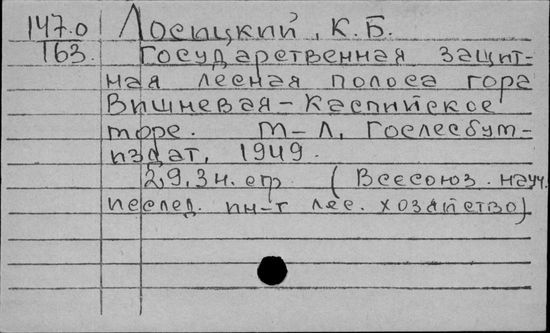 147.0 Лосицкий, К.Б.
163. Государственная защит-
ная лесная полоса гора
Вишневая - Каспийское
море. М-Л, Гослесбум-
издат, 1949.
29,3 н. стр. (Всесоюз. науч.
исслед. ин-т лес. хозяйство)